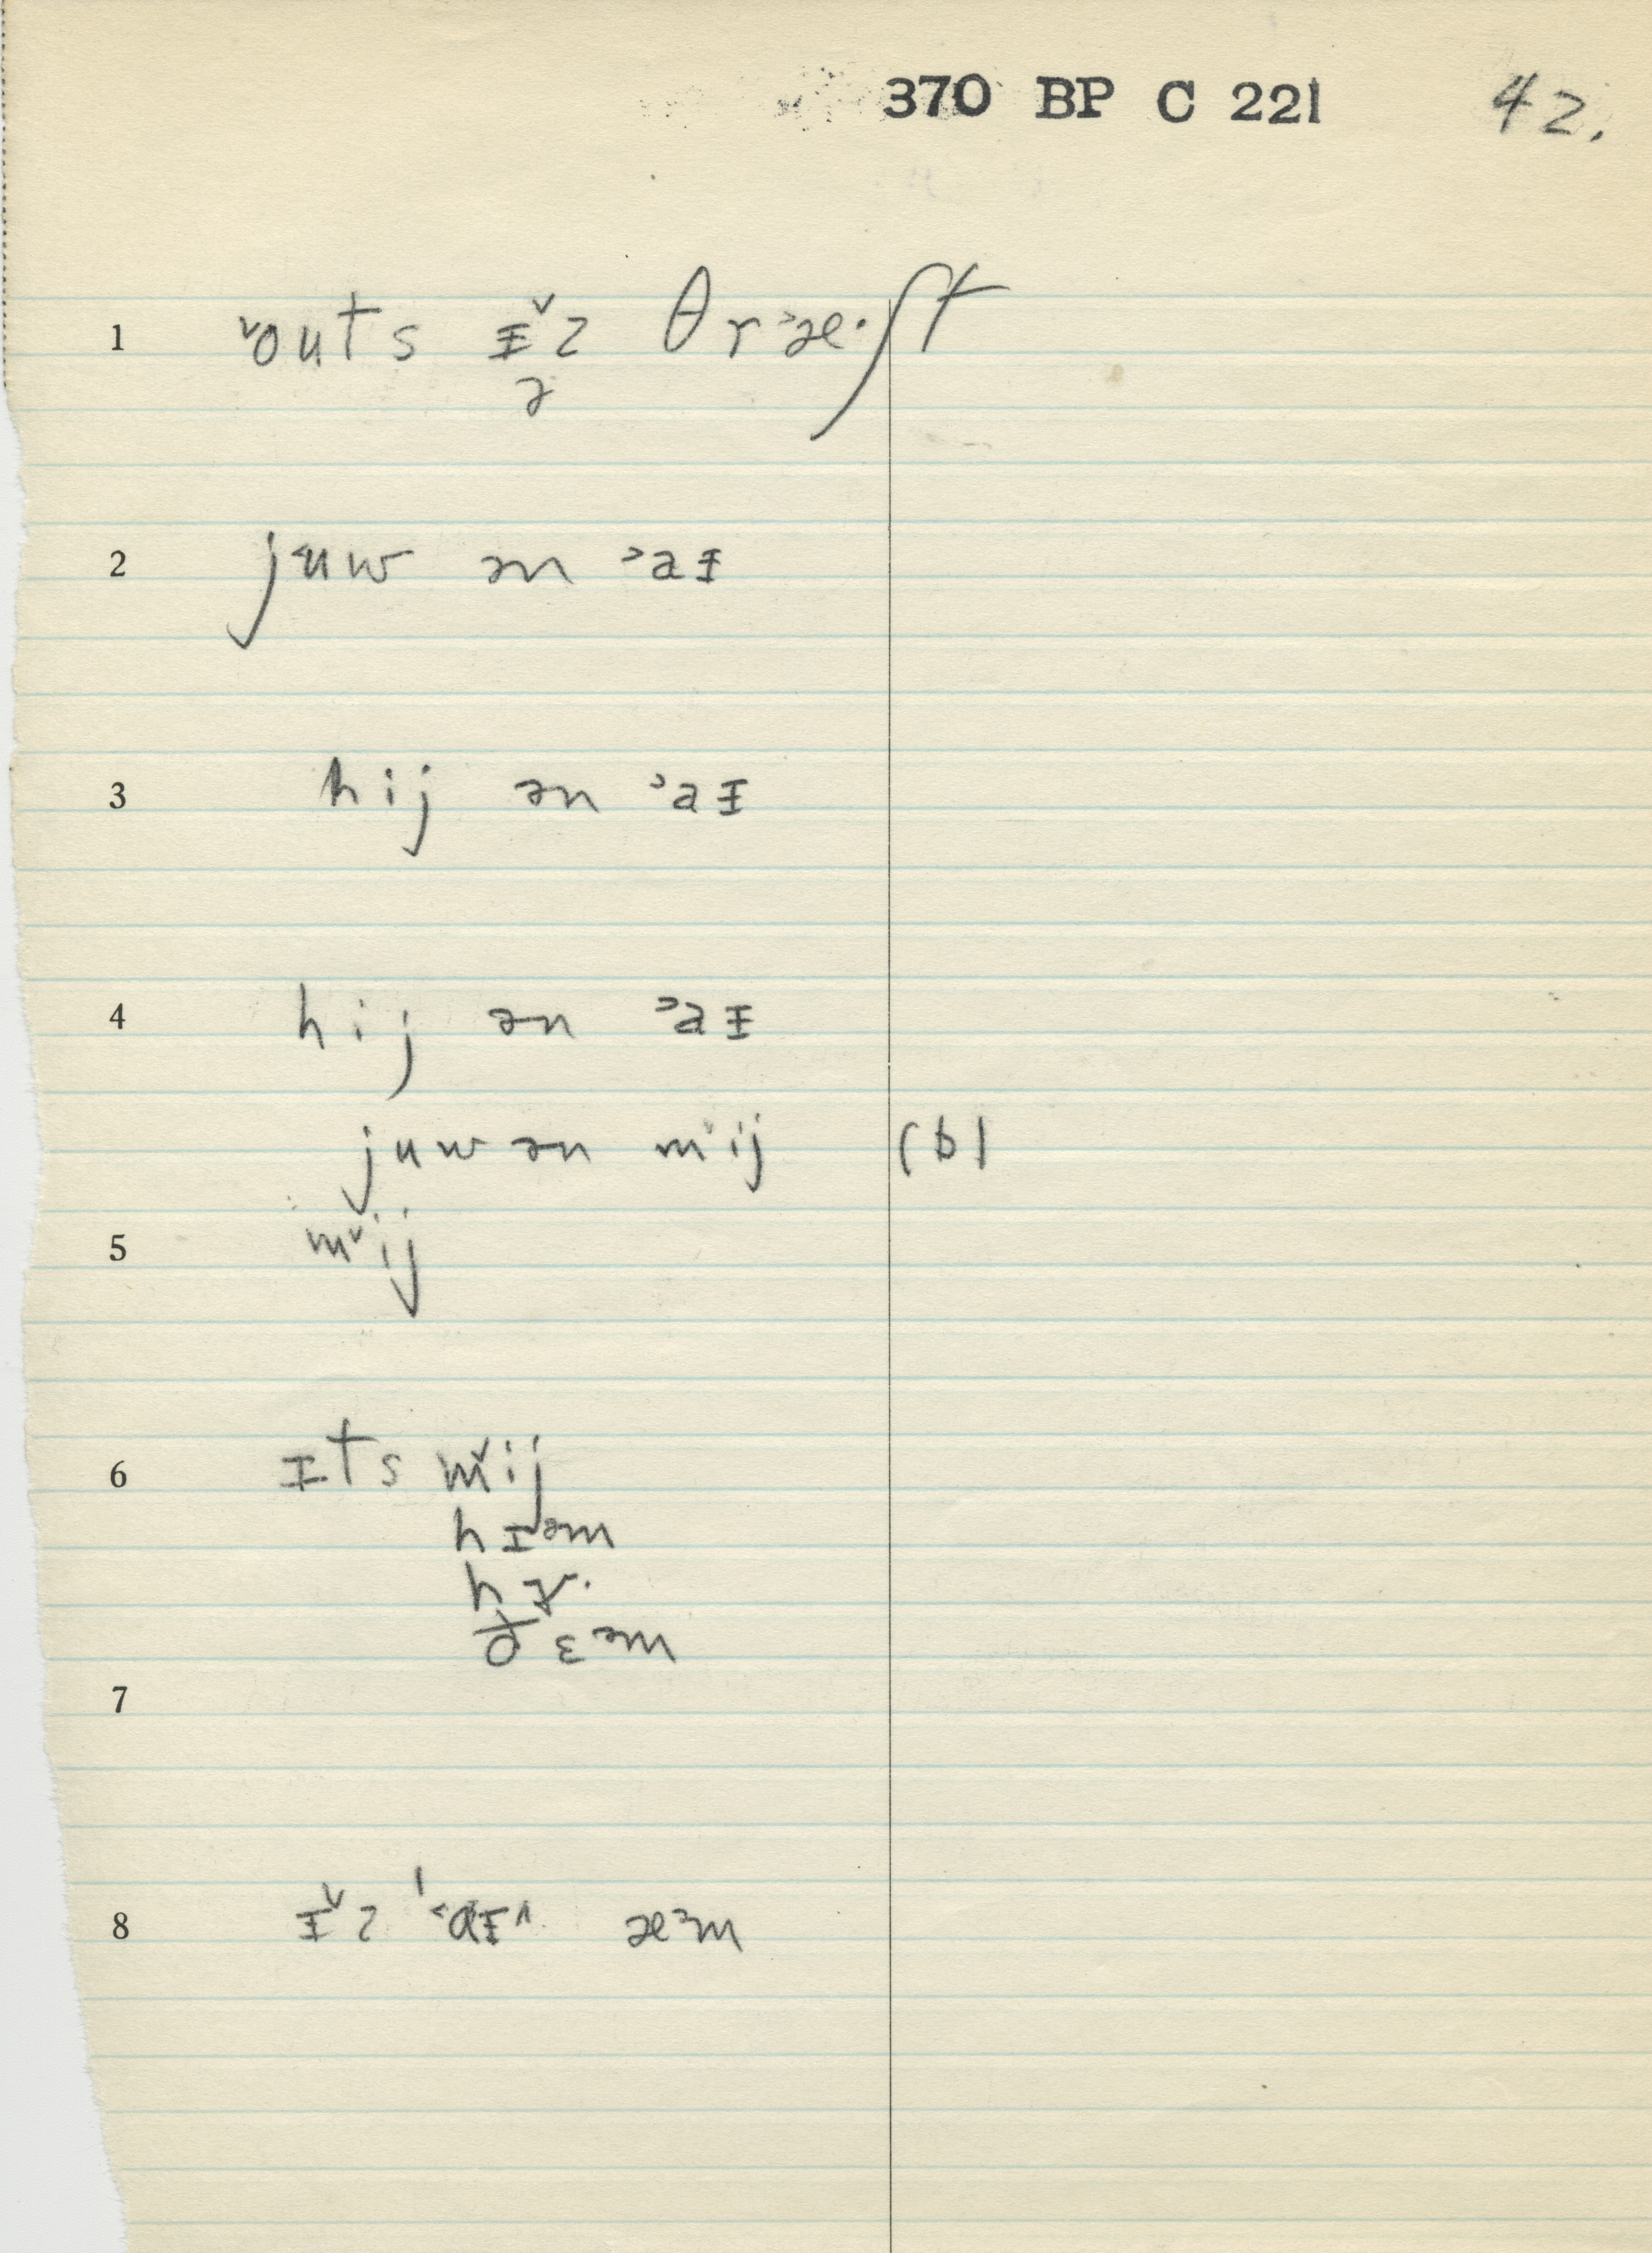 370 BP C 221 42.
1 ˅outs ɪ˅z θr˃æ·ʃt
ə
2 j˂uw ən ˃aɪ
3 hij ən ˃aɪ
4 hij ən ˃aɪ
juw ən m˅ij (b)
5 m˅ij
6 ɪts m˅ij
hɪᵊm
hɝ·
ðɛᵊm
7
8 ɪ˅z ˈ˂aɪ˄ æᵊm